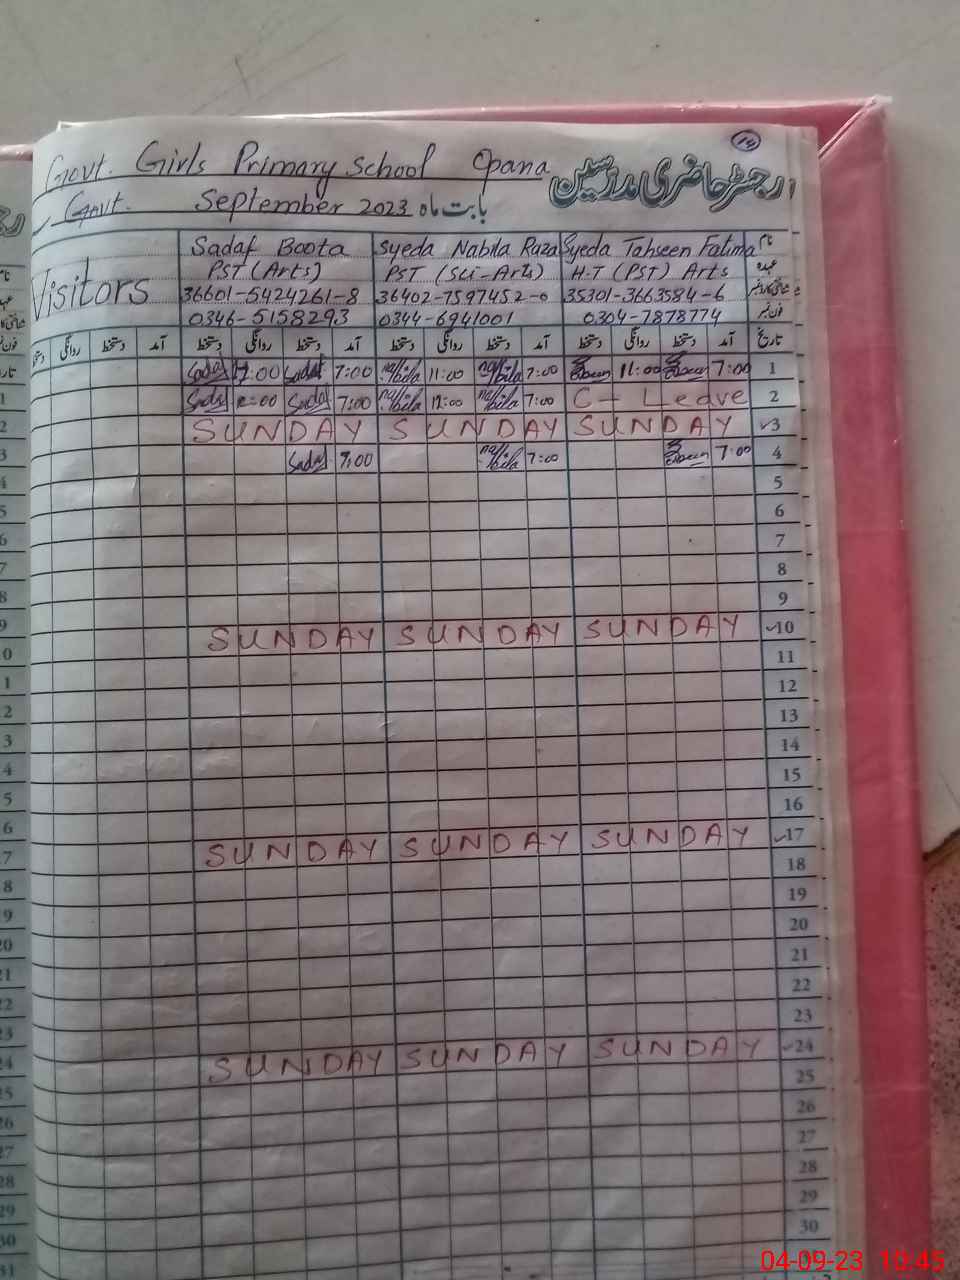 14
Govt. Girls Primary School Opana رجسٹر حاضری مدرسین
Govt. September 2023 بابت ماہ
Visitors
Sadaf Boota Syeda Nabila Raza Syeda Tahseen Fatima نام
PST (Arts) PST (Sci-Arts) H.T (PST) Arts عہدہ
36601-5424261-8 36402-7597452-0 35301-3663584-6
0346-5158293 0344-6941001 0304-7878774 فون نمبر
دستخط روانگی دستخط آمد دستخط روانگی دستخط آمد دستخط روانگی دستخط آمد دستخط روانگی دستخط آمد تاریخ
Sadaf 12:00 Sadaf 7:00 Nabila 11:00 Nabila 7:00 11:00 7:00 1
Sadaf 12:00 Sadaf 7:00 Nabila 12:00 Nabila 7:00 C- Leave 2
SUNDAY SUNDAY SUNDAY 3
Sadaf 7:00 Nabila 7:00 7:00 4
5
6
7
8
9
SUNDAY SUNDAY SUNDAY 10
11
12
13
14
15
16
SUNDAY SUNDAY SUNDAY 17
18
19
20
21
22
23
SUNDAY SUNDAY SUNDAY 24
25
26
27
28
29
30
04-09-23 10:45